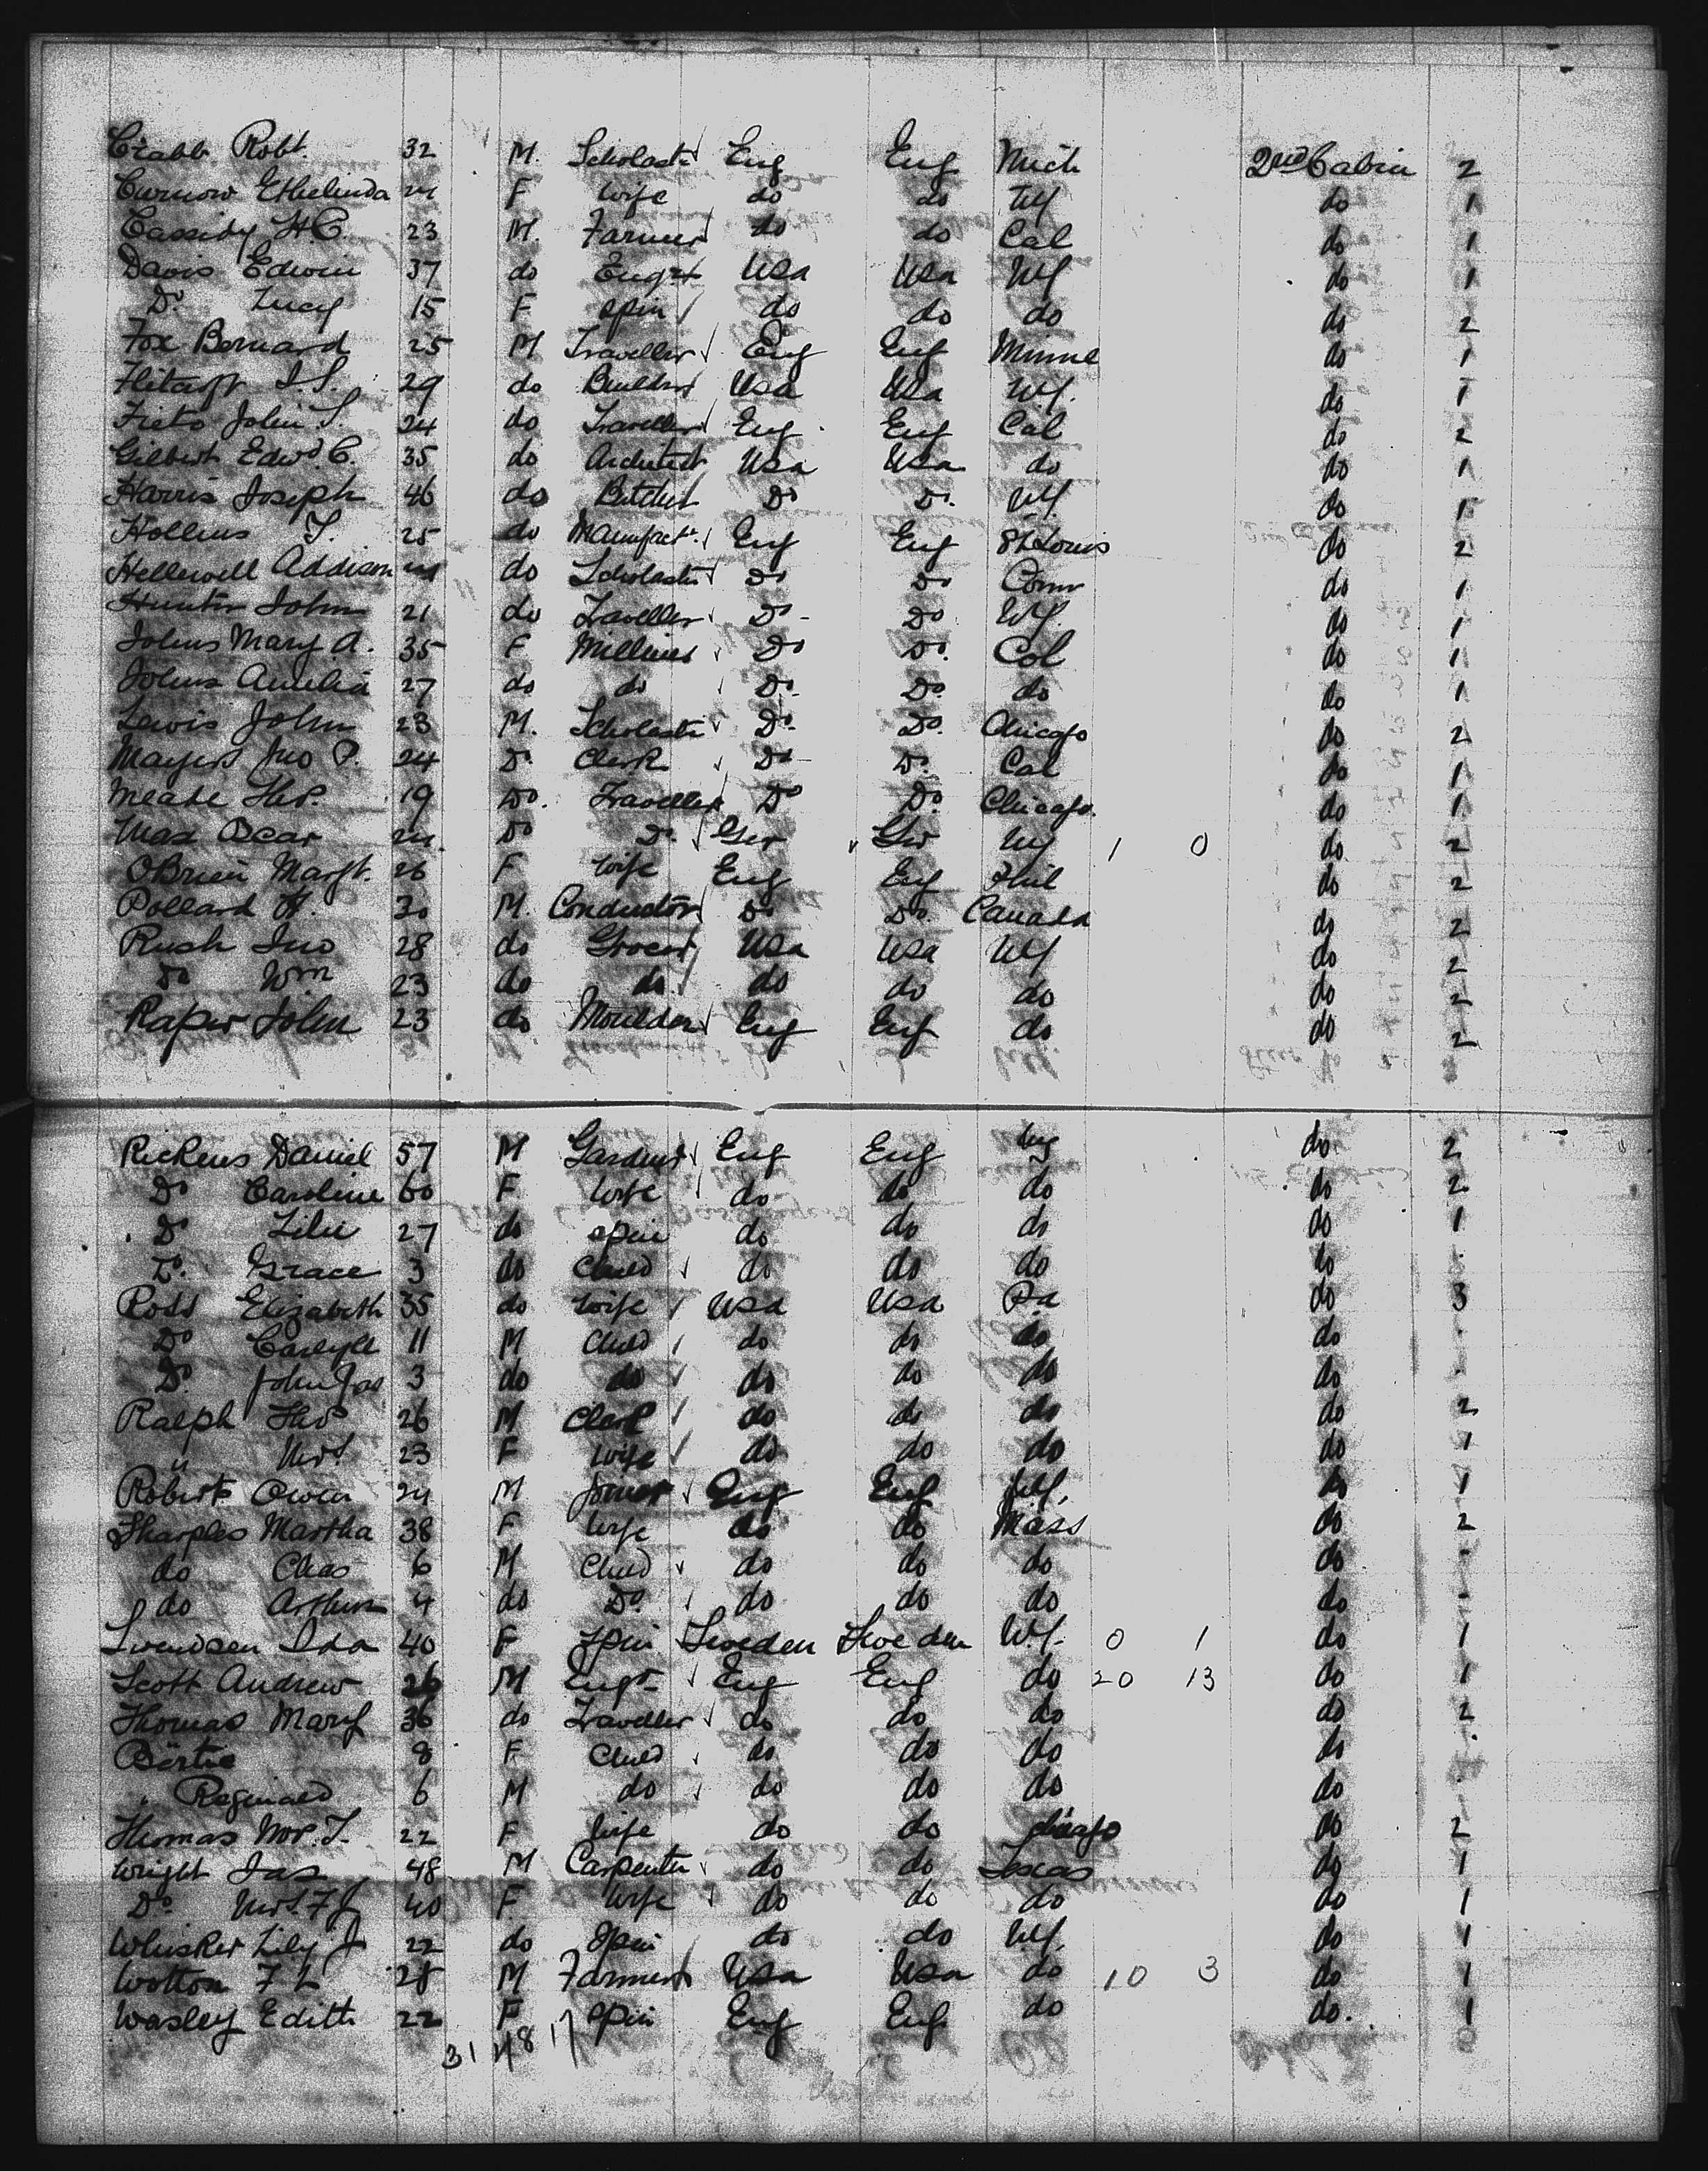 Crabb Robt. 32 M. Scholastic Eng Eng Mich 2nd Cabin 2
Curnow Ethelinda 24 F Wife do do NY do 1
Cassidy H.C. 23 M. Farmer do do Cal do 1
Davis Edwin 37 do Engr Usa Usa NY do 1
Do. Lucy 15 F Spin do do do do 2
Fox Bernard 25 M Traveller Eng Eng Minne do 1
29 do Builder Usa Usa NY. do 1
John S. 24 do Traveller Eng Eng Cal do 2
Gilbert Edwd. C. 35 do Architect Usa Usa do do 1
Harris Joseph 46 do Butcher Do Do. NY. do 1
Hollins T. 25 do Manufactr. Eng Eng St Louis do 2
Hellewell Addison do Scholastic Do Do Conn do 1
Hunter John 21 do Traveller Do Do. NY. do 1
Johns Mary A. 35 F Milliner Do Do. Col do 1
Johns Amelia 27 do do Do. Do. do do 1
Lewis John 23 M. Scholastic Do. Do. Chicago do 2
Mayers Jno P. 24 Do. Clerk Do Do. Cal do 1
Meade Thos. 19 Do. Traveller Do Do. Chicago. do 1
Max Oscar 24 Do Do. Ger Ger NY 1 0 do 2
OBrien Margt. 26 F Wife Eng Eng Phil do 2
Pollard H. 30 M. Conductor Do Do. Canada do 2
Rush Jno 28 do Grocer Usa Usa NY do 2
Do Wm 23 do do. do do do do 2
Raper John 23 do Moulder Eng Eng do do 2
Rickens Daniel 57 M Gardner Eng Eng NY do 2
Do Caroline 60 F Wife do do do do 2
Do Lilie 27 do Spin do do do do 1
Do. Grace 3 do Child do do do do
Ross Elizabeth 35 do Wife Usa Usa Pa do 3
Do Carlyle 11 M Child do do do do
Do. John Jas 3 do do do do do do
Ralph Thos 26 M Clerk do do do do 2
" Mrs. 23 F Wife do do do do 1
Roberts Owen 24 M Joiner Eng Eng NY. do 1
Sharples Martha 38 F Wife do do Mass do 2
do Chas 6 M Child do do do do -
do Arthur 4 do Do. do do do do -
Svendsen Ida 40 F Spin Sweden Sweden NY. 0 1 do 1
Scott Andrew 26 M Engr. Eng Eng do 20 13 do 1
Thomas Mary 36 do Traveller do do do do 2
Bertie 8 F Child do do do do
" Reginald 6 M do do do do do
Thomas Mrs. T. 22 F Wife do do Chicago do 2
Wright Jas 48 M Carpenter do do Texas do 1
Do. Mrs. F J 40 F. Wife do do do do 1
Whisker Lily J 22 do Spin do do NY. do 1
Wotton F L 28 M Farmer Usa Usa do 10 3 do 1
Wasley Edith 22 F Spin Eng Eng. do do. 1
31 48 17